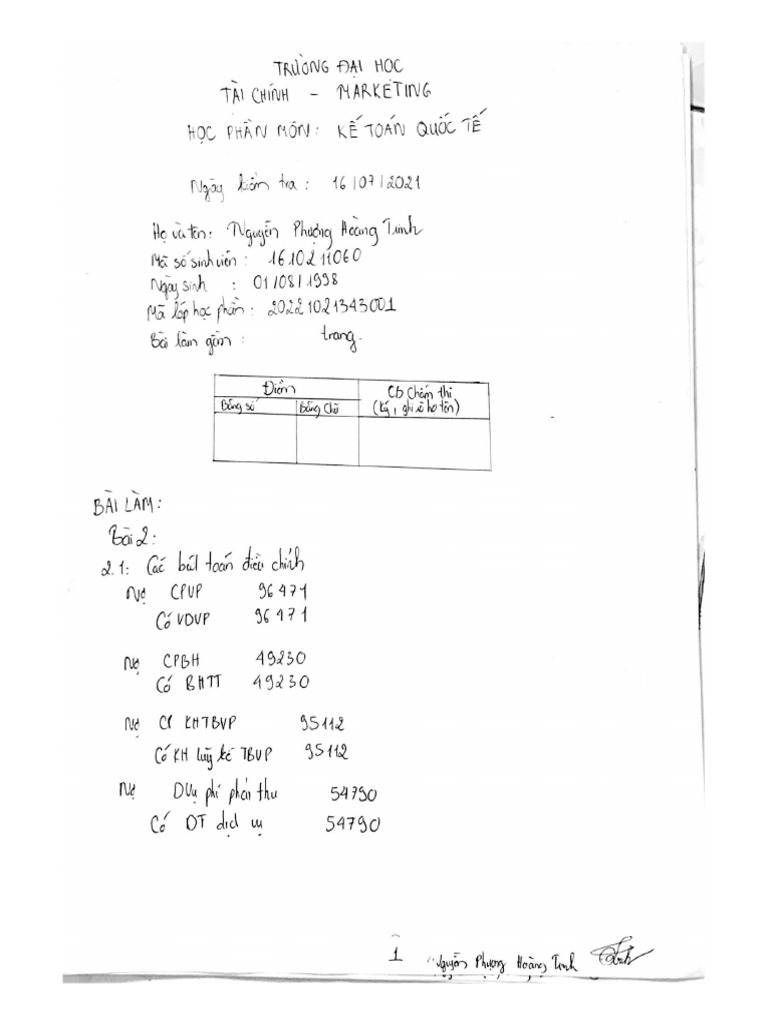 TRƯỜNG ĐẠI HỌC
TÀI CHÍNH - MARKETING
HỌC PHẦN MÔN: KẾ TOÁN QUỐC TẾ
Ngày kiểm tra: 16/07/2021
Họ và tên: Nguyễn Phượng Hoàng Trinh
Mã số sinh viên: 1610211060
Ngày sinh: 01/08/1998
Mã lớp học phần: 20221021343001
Bài làm gồm: trang.
Điểm Cb Chấm thi
Bằng số Bằng Chữ (ký, ghi rõ họ tên)
BÀI LÀM:
Bài 2:
2.1: Các bút toán điều chỉnh
Nợ CPVP 96471
Có VDVP 96471
Nợ CPBH 49230
Có BHTT 49230
Nợ CP KHTBVP 95112
Có KH luỹ kế TBVP 95112
Nợ DVụ phí phải thu 54790
Có DT dịch vụ 54790
1 Nguyễn Phượng Hoàng Trinh